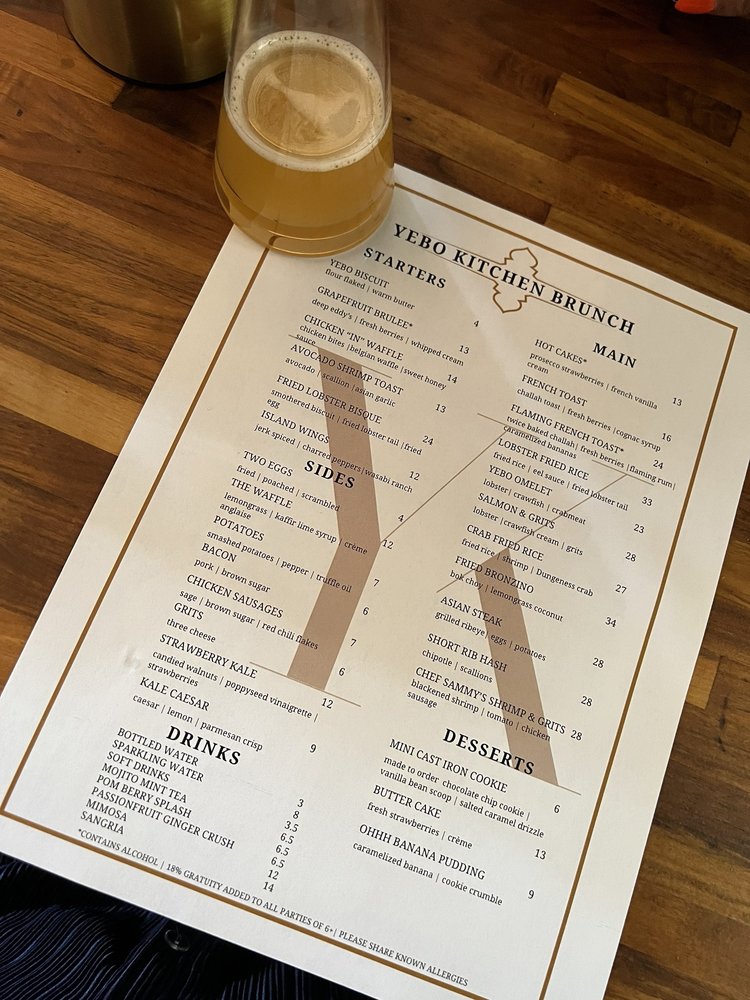 YEBO KITCHEN BRUNCH
STARTERS
YEBO BISCUIT
flour flaked | warm butter
4
GRAPEFRUIT BRULEE*
deep eddy's | fresh berries | whipped cream
13
CHICKEN "IN" WAFFLE
chicken bites |belgian waffle |sweet honey
sauce
14
AVOCADO SHRIMP TOAST
avocado | scallion |asian garlic
13
FRIED LOBSTER BISQUE
smothered biscuit | fried lobster tail | fried
egg
24
ISLAND WINGS
jerk spiced | charred peppers| wasabi ranch
12
SIDES
TWO EGGS
fried | poached | scrambled
4
THE WAFFLE
lemongrass | kaffir lime syrup | crème
anglaise
12
POTATOES
smashed potatoes | pepper | truffle oil
7
BACON
pork | brown sugar
6
CHICKEN SAUSAGES
sage | brown sugar | red chili flakes
7
GRITS
three cheese
6
STRAWBERRY KALE
candied walnuts | poppyseed vinaigrette |
strawberries
12
KALE CAESAR
caesar | lemon | parmesan crisp
9
DRINKS
BOTTLED WATER 3
SPARKLING WATER 8
SOFT DRINKS 3.5
MOJITO MINT TEA 6.5
POM BERRY SPLASH 6.5
PASSIONFRUIT GINGER CRUSH 6.5
MIMOSA 12
SANGRIA 14
MAIN
HOT CAKES*
prosecco strawberries | french vanilla
cream
13
FRENCH TOAST
challah toast | fresh berries |cognac syrup
16
FLAMING FRENCH TOAST*
twice baked challah| fresh berries |flaming rum|
caramelized bananas
24
LOBSTER FRIED RICE
fried rice | eel sauce | fried lobster tail
33
YEBO OMELET
lobster| crawfish | crabmeat
23
SALMON & GRITS
lobster |crawfish cream | grits
28
CRAB FRIED RICE
fried rice | shrimp | Dungeness crab
27
FRIED BRONZINO
bok choy | lemongrass coconut
34
ASIAN STEAK
grilled ribeye| eggs | potatoes
28
SHORT RIB HASH
chipotle | scallions
28
CHEF SAMMY'S SHRIMP & GRITS 28
blackened shrimp | tomato | chicken
sausage
DESSERTS
MINI CAST IRON COOKIE
made to order chocolate chip cookie |
vanilla bean scoop | salted caramel drizzle
6
BUTTER CAKE
fresh strawberries | crème
13
OHHH BANANA PUDDING
caramelized banana | cookie crumble
9
*CONTAINS ALCOHOL | 18% GRATUITY ADDED TO ALL PARTIES OF 6+| PLEASE SHARE KNOWN ALLERGIES